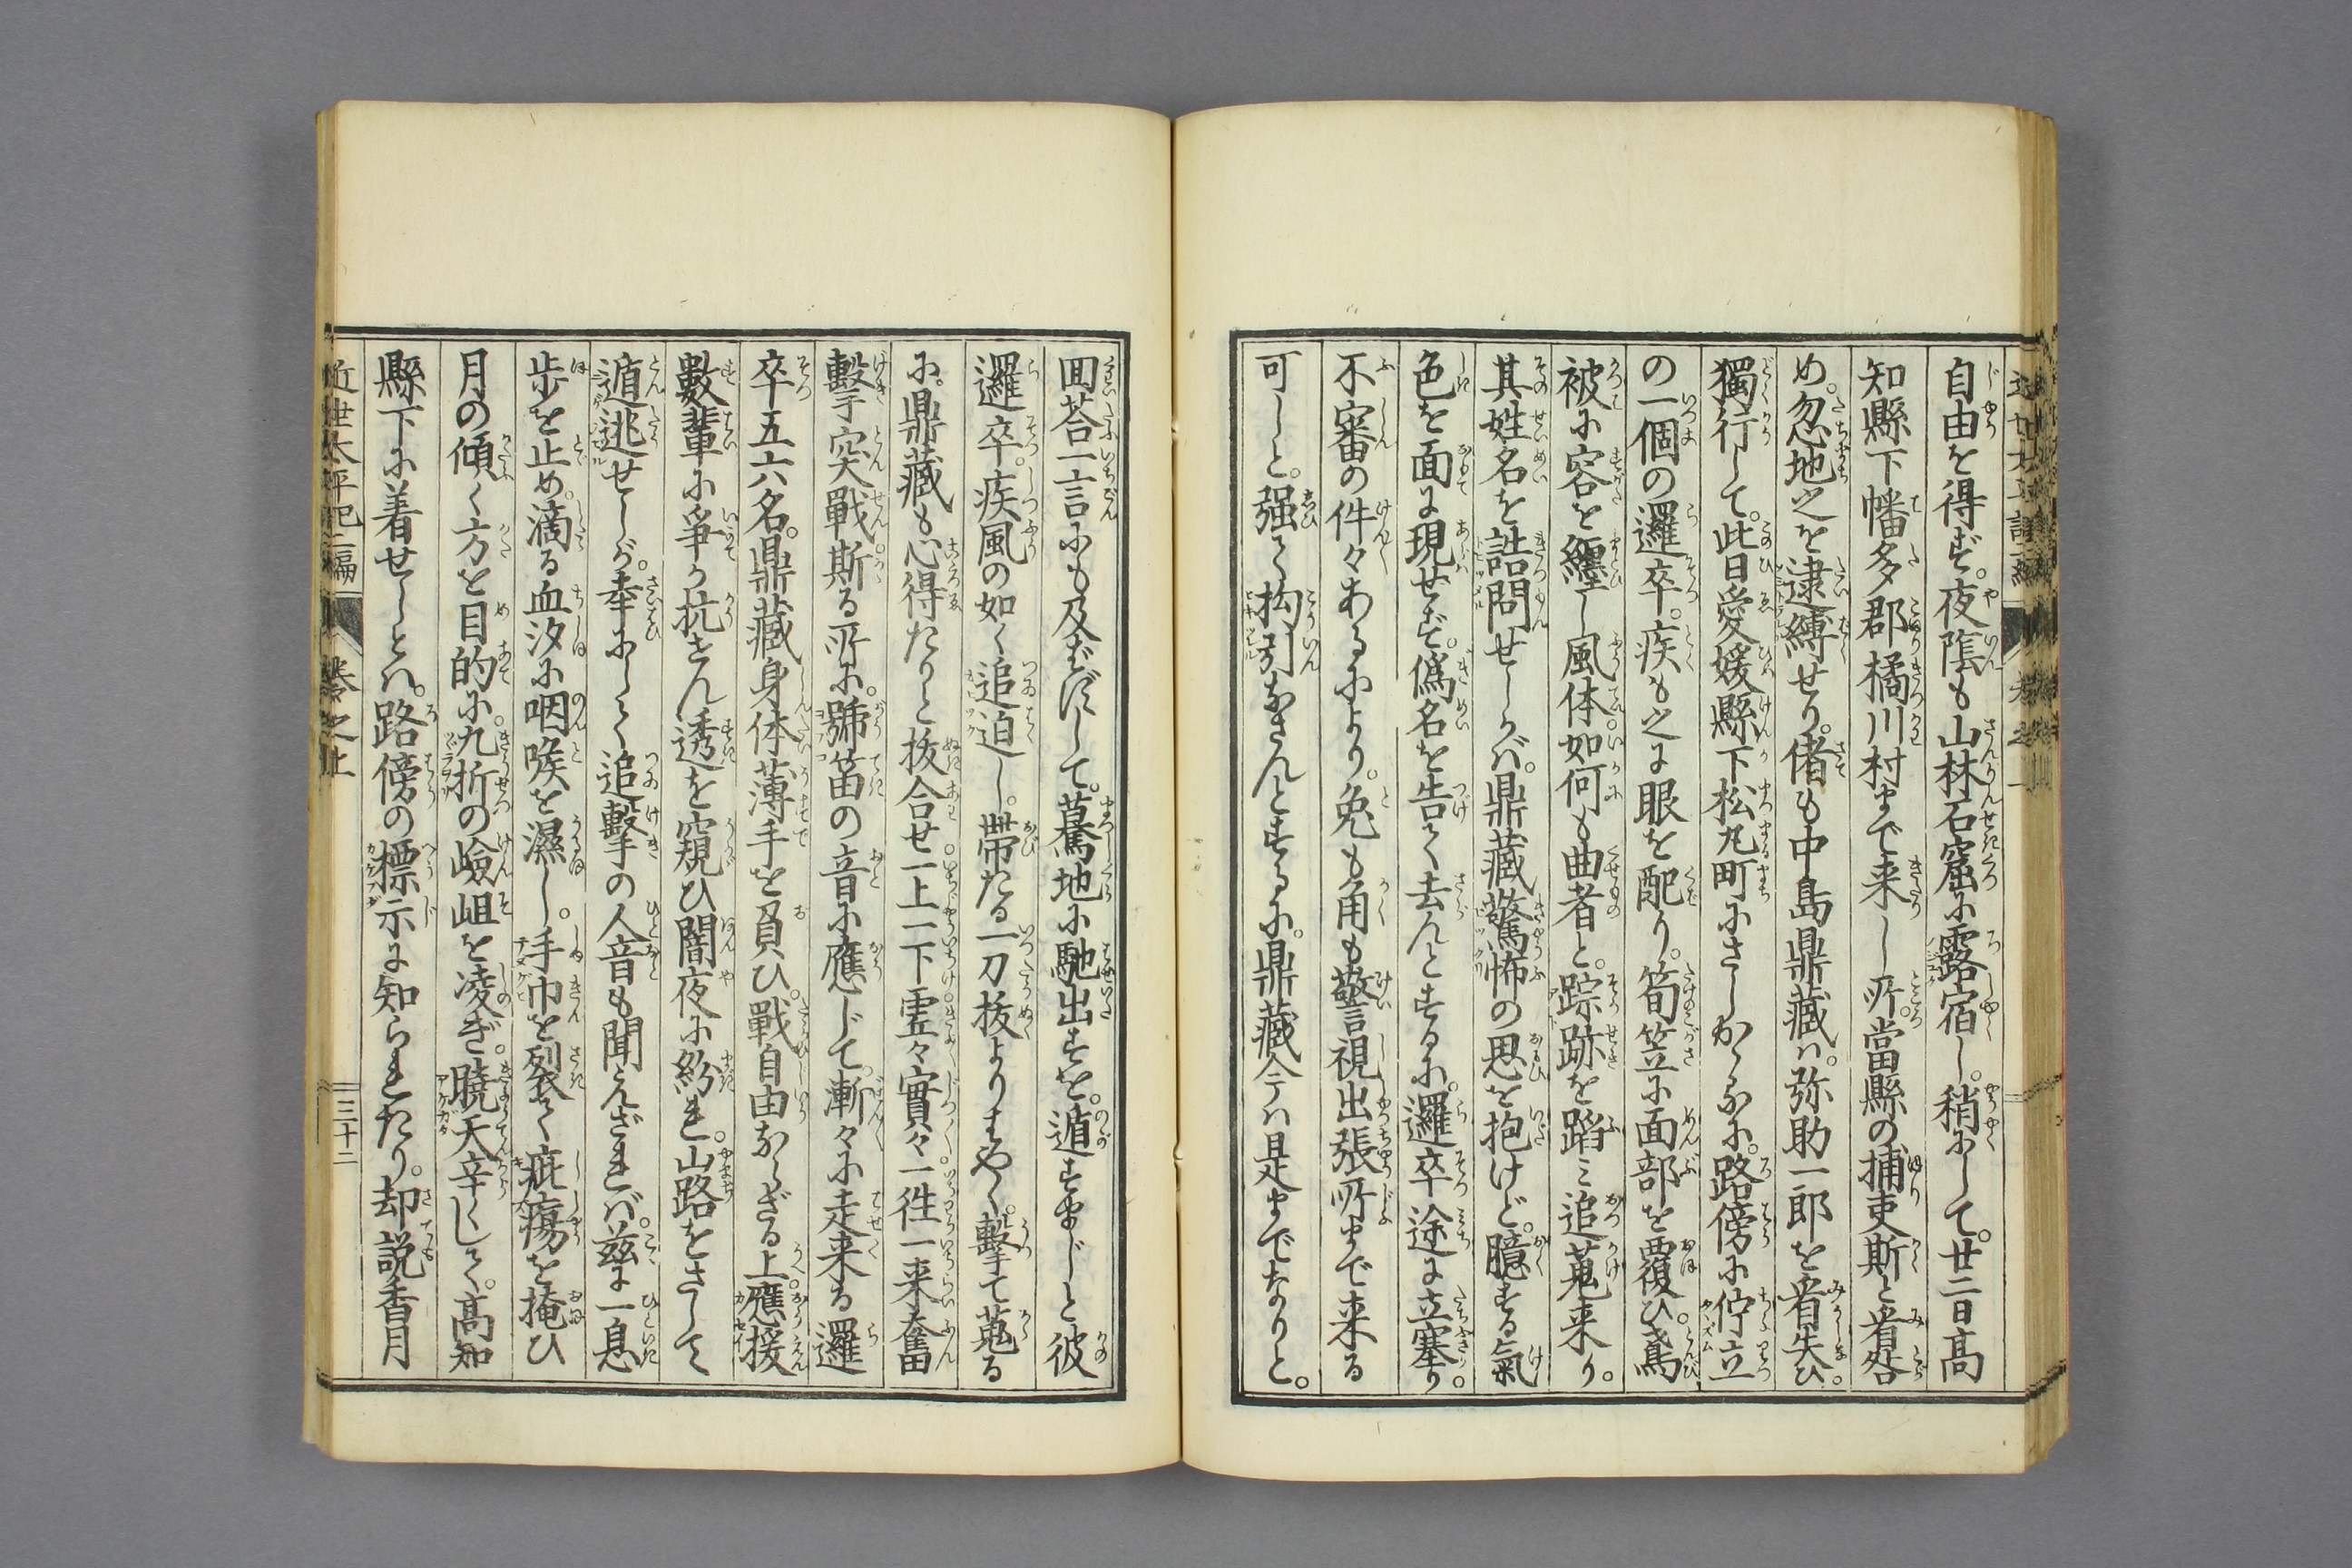 自由を得ず。夜陰も山林石窟に露宿し。稍にして。廿二日高
知縣下幡多郡橘川村まで来し所。當縣の捕吏斯と看咎
め。忽地之を逮縛せり。偖も中島鼎藏ハ。弥助一郎を看失ひ。
獨行して。此日愛媛縣下松丸町にさしかゝるに。路傍に佇立
の一個の邏卒。疾も之に眼を配り。筍笠に面部を覆ひ。鳶
被に容を纒し風体。如何も曲者と。踪跡を蹈ミ追蒐来り。
其姓名を詰問せしかバ。鼎藏驚怖の思を抱けど。臆する氣
色を面に現せず。偽名を告て去んとするに。邏卒途に立塞り。
不審の件々あるにより。兔も角も警視出張所まで来る
可しと。强て拘引なさんとするに。鼎藏今ハ是までなりと。
回荅一言にも及ばずして。驀地に馳出すを。遁すまじと彼
邏卒。疾風の如く追迫し。帶たる一刀抜よりはやく。擊て蒐る
に。鼎藏も心得たりと抜合せ。一上一下。虚々實々。一徃一来奮
擊突戰。斯る所に。號笛の音に應じて。漸々に走来る邏
卒五六名。鼎藏身体薄手を負ひ。戰自由ならざる上。應援
數輩に爭か抗せん。透を窺ひ闇夜に紛れ。山路をさして
遁逃せしが。幸にして追擊の人音も聞えざれバ。茲に一息
歩を止め。滴る血汐に咽喉を濕し。手巾を裂て疵瘍を掩ひ
月の傾く方を目的に。九折の嶮岨を凌ぎ。曉天辛くして。高知
縣下に着せしとハ。路傍の標示に知られたり。却説香月
近世太平記二編
卷之上
三十二